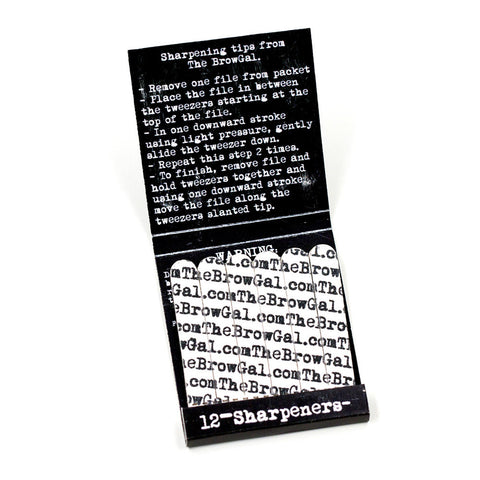 Sharpening tips from
The BrowGal.
- Remove one file from packet
- Place the file in between
the tweezers starting at the
top of the file.
- In one downward stroke
using light pressure, gently
slide the tweezer down.
- Repeat this step 2 times.
- To finish, remove file and
hold tweezers together and
using one downward stroke
move the file along the
tweezers slanted tip.
WARNING:
Gal.comTheBrowGal.com
comTheBrowGal.comThe
eBrowGal.comTheBrow
Gal.comTheBrowGal.c
BrowGal.comTheBrowG
al.comTheBrowGal.com
eBrowGal.comTheBrow
comTheBrowGal.com
12-Sharpeners-